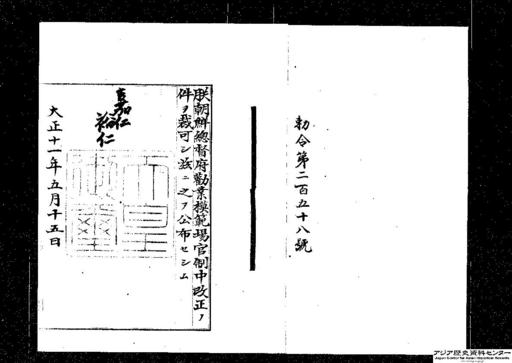 勅令第二百五十八號
朕朝鮮總督府勸業模範場官制中改正ノ
件ヲ裁可シ玆ニ之ヲ公布セシム
嘉仁
裕仁
大正十一年五月十五日
アジア歴史資料センター
Japan Center for Asian Historical Records